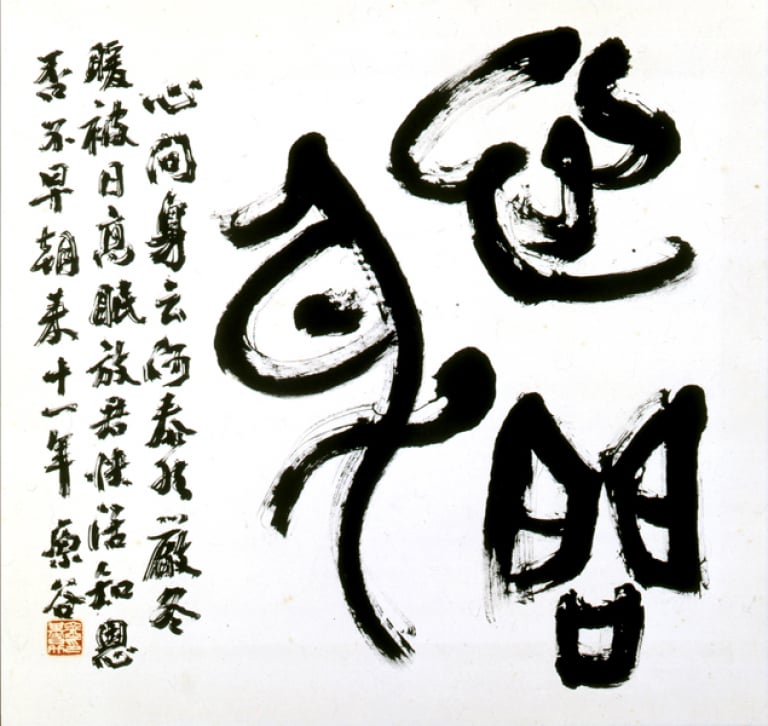 心問
身
心問身云何泰然嚴冬
暖被日高眠放君快活知恩
否不早朝来十一年 谷